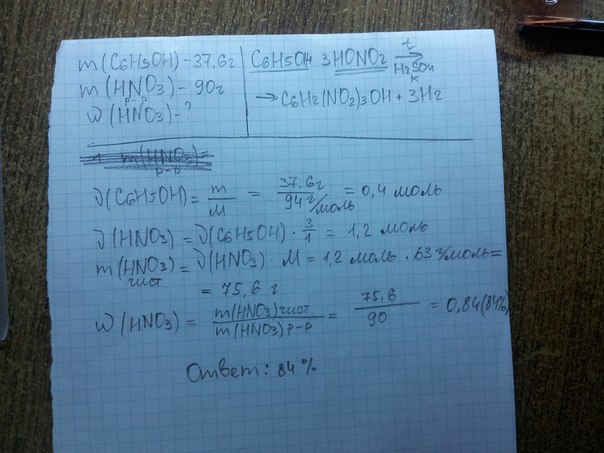 m(C6H5OH) - 37,6г
m(HNO3) - 90г
р-р
W(HNO3) - ?
C6H5OH + 3HONO2 t→ H2SO4 к
→ C6H2(NO2)3OH + 3H2
1. m(HNO3)=
р-р
ν(C6H5OH) = m/M = 37,6г/94 г/моль = 0,4 моль
ν(HNO3) = ν(C6H5OH) · 3/1 = 1,2 моль
m(HNO3) = ν(HNO3) · M = 1,2 моль · 63 г/моль =
чист
= 75,6 г
W(HNO3) = m(HNO3)чист/m(HNO3)р-р = 75,6/90 = 0,84(84%)
Ответ: 84%